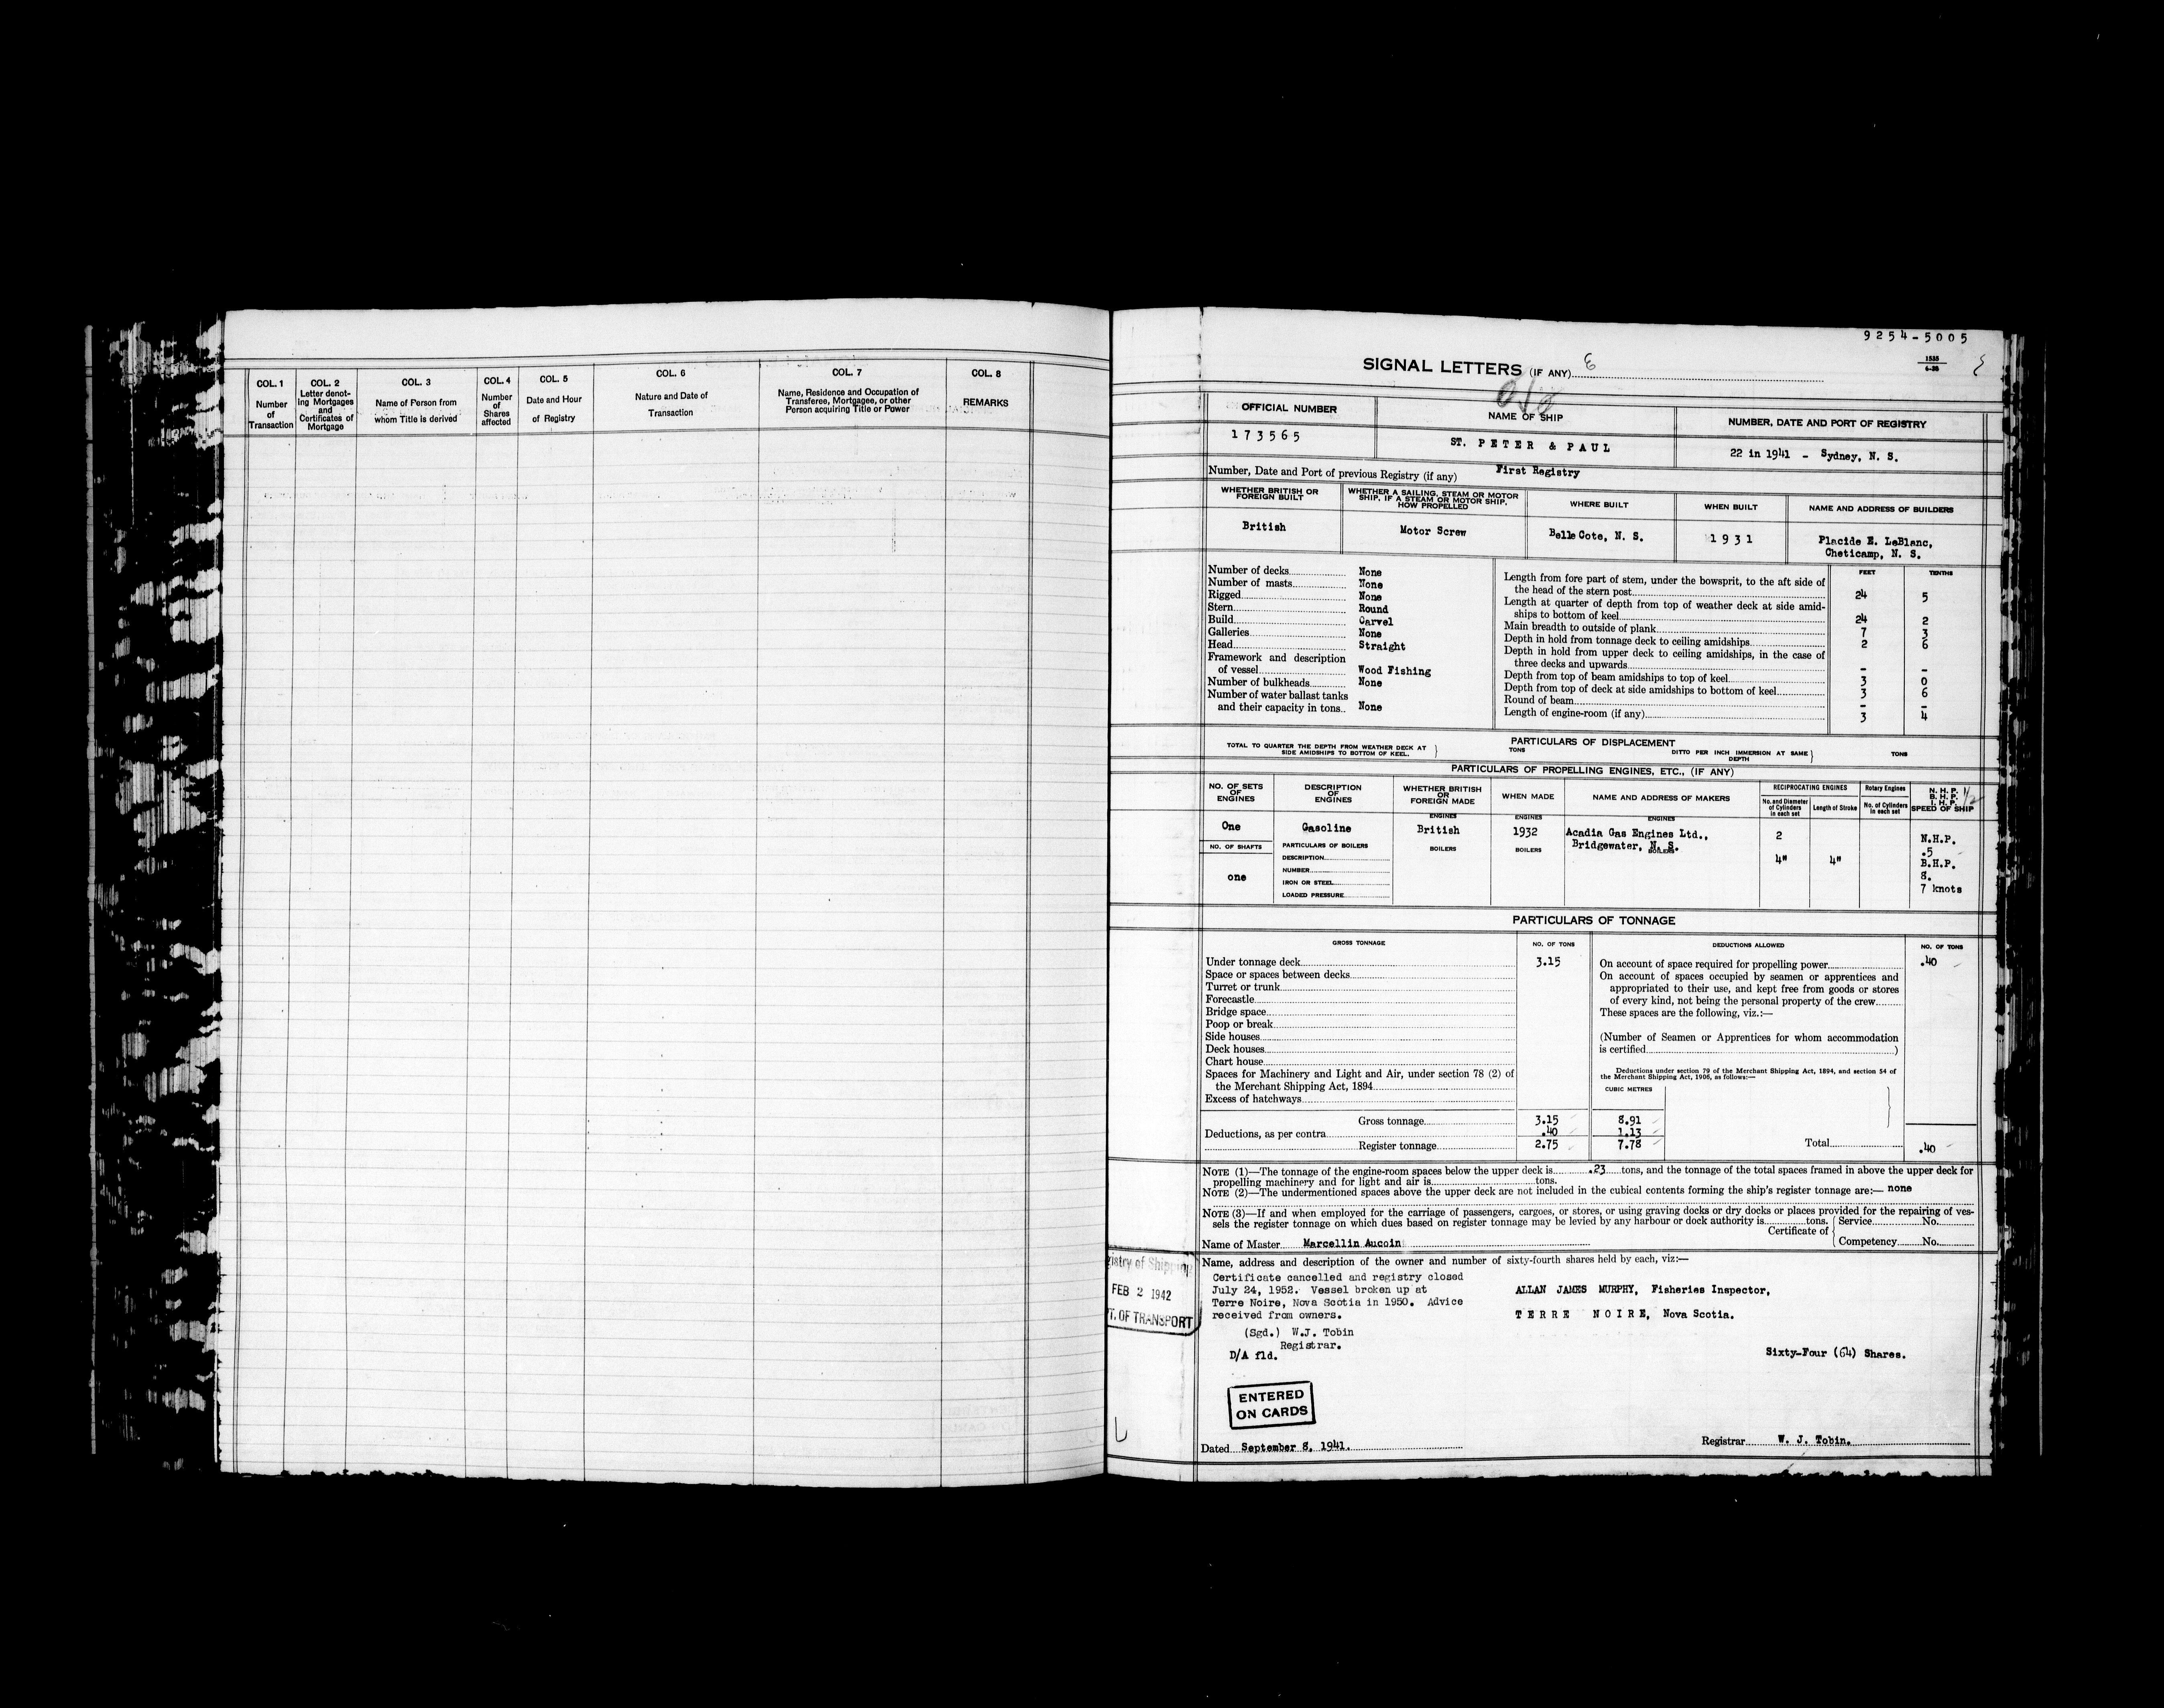 COL. 1
Number
of
Transaction
COL. 2
Letter denot-
ing Mortgages
and
Certificates of
Mortgage
COL. 3
Name of Person from
whom Title is derived
COL. 4
Number
of
Shares
affected
COL. 5
Date and Hour
of Registry
COL. 6
Nature and Date of
Transaction
COL. 7
Name, Residence and Occupation of
Transferee, Mortgagee, or other
Person acquiring Title or Power
COL. 8
REMARKS
9254-5005
SIGNAL LETTERS (IF ANY)
OFFICIAL NUMBER
173565
NAME OF SHIP
ST. PETER & PAUL
NUMBER, DATE AND PORT OF REGISTRY
22 in 1941 - Sydney, N. S.
Number, Date and Port of previous Registry (if any) First Registry
WHETHER BRITISH OR
FOREIGN BUILT
British
WHETHER A SAILING, STEAM OR MOTOR
SHIP, IF A STEAM OR MOTOR SHIP,
HOW PROPELLED
Motor Screw
WHERE BUILT
Belle Cote, N. S.
WHEN BUILT
1931
NAME AND ADDRESS OF BUILDERS
Placide E. LeBlanc,
Cheticamp, N. S.
Number of decks None
Number of masts None
Rigged None
Stern Round
Build Carvel
Galleries None
Head Straight
Framework and description
of vessel Wood Fishing
Number of bulkheads None
Number of water ballast tanks
and their capacity in tons.. None
FEET TENTHS
Length from fore part of stem, under the bowsprit, to the aft side of
the head of the stern post 24 5
Length at quarter of depth from top of weather deck at side amid-
ships to bottom of keel 24 2
Main breadth to outside of plank 7 3
Depth in hold from tonnage deck to ceiling amidships 2 6
Depth in hold from upper deck to ceiling amidships, in the case of
three decks and upwards - -
Depth from top of beam amidships to top of keel 3 0
Depth from top of deck at side amidships to bottom of keel 3 6
Round of beam - -
Length of engine-room (if any) 3 4
PARTICULARS OF DISPLACEMENT
TOTAL TO QUARTER THE DEPTH FROM WEATHER DECK AT
SIDE AMIDSHIPS TO BOTTOM OF KEEL. } TONS
DITTO PER INCH IMMERSION AT SAME
DEPTH } TONS
PARTICULARS OF PROPELLING ENGINES, ETC., (IF ANY)
NO. OF SETS
OF
ENGINES
One
NO. OF SHAFTS
one
DESCRIPTION
OF
ENGINES
Gasoline
PARTICULARS OF BOILERS
DESCRIPTION
NUMBER
IRON OR STEEL
LOADED PRESSURE
WHETHER BRITISH
OR
FOREIGN MADE
ENGINES
British
BOILERS
WHEN MADE
ENGINES
1932
BOILERS
NAME AND ADDRESS OF MAKERS
ENGINES
Acadia Gas Engines Ltd.,
Bridgewater, N. S.
BOILERS
RECIPROCATING ENGINES
No. and Diameter
of Cylinders
in each set
2
4"
Length of Stroke
4"
Rotary Engines
No. of Cylinders
in each set
N. H. P.
B. H. P.
I. H. P.
SPEED OF SHIP
N.H.P.
.5
B.H.P.
8.
7 knots
PARTICULARS OF TONNAGE
GROSS TONNAGE NO. OF TONS
Under tonnage deck 3.15
Space or spaces between decks
Turret or trunk
Forecastle
Bridge space
Poop or break
Side houses
Deck houses
Chart house
Spaces for Machinery and Light and Air, under section 78 (2) of
the Merchant Shipping Act, 1894
Excess of hatchways
Gross tonnage 3.15 8.91
Deductions, as per contra .40 1.13
Register tonnage 2.75 7.78
DEDUCTIONS ALLOWED NO. OF TONS
On account of space required for propelling power .40
On account of spaces occupied by seamen or apprentices and
appropriated to their use, and kept free from goods or stores
of every kind, not being the personal property of the crew
These spaces are the following, viz.:—
(Number of Seamen or Apprentices for whom accommodation
is certified )
Deductions under section 79 of the Merchant Shipping Act, 1894, and section 54 of
the Merchant Shipping Act, 1906, as follows:—
CUBIC METRES
Total .40
NOTE (1)—The tonnage of the engine-room spaces below the upper deck is .23 tons, and the tonnage of the total spaces framed in above the upper deck for
propelling machinery and for light and air is tons.
NOTE (2)—The undermentioned spaces above the upper deck are not included in the cubical contents forming the ship's register tonnage are:— none
NOTE (3)—If and when employed for the carriage of passengers, cargoes, or stores, or using graving docks or dry docks or places provided for the repairing of ves-
sels the register tonnage on which dues based on register tonnage may be levied by any harbour or dock authority is tons.
Certificate of { Service No.
Competency No.
Name of Master Marcellin Aucoin
Name, address and description of the owner and number of sixty-fourth shares held by each, viz:—
Certificate cancelled and registry closed
July 24, 1952. Vessel broken up at
Terre Noire, Nova Scotia in 1950. Advice
received from owners.
(Sgd.) W.J. Tobin
Registrar.
D/A fld.
ALLAN JAMES MURPHY, Fisheries Inspector,
TERRE NOIRE, Nova Scotia.
Sixty-Four (64) Shares.
istry of Shipping
FEB 2 1942
T. OF TRANSPORT
ENTERED
ON CARDS
Dated September 8, 1941.
Registrar W. J. Tobin.